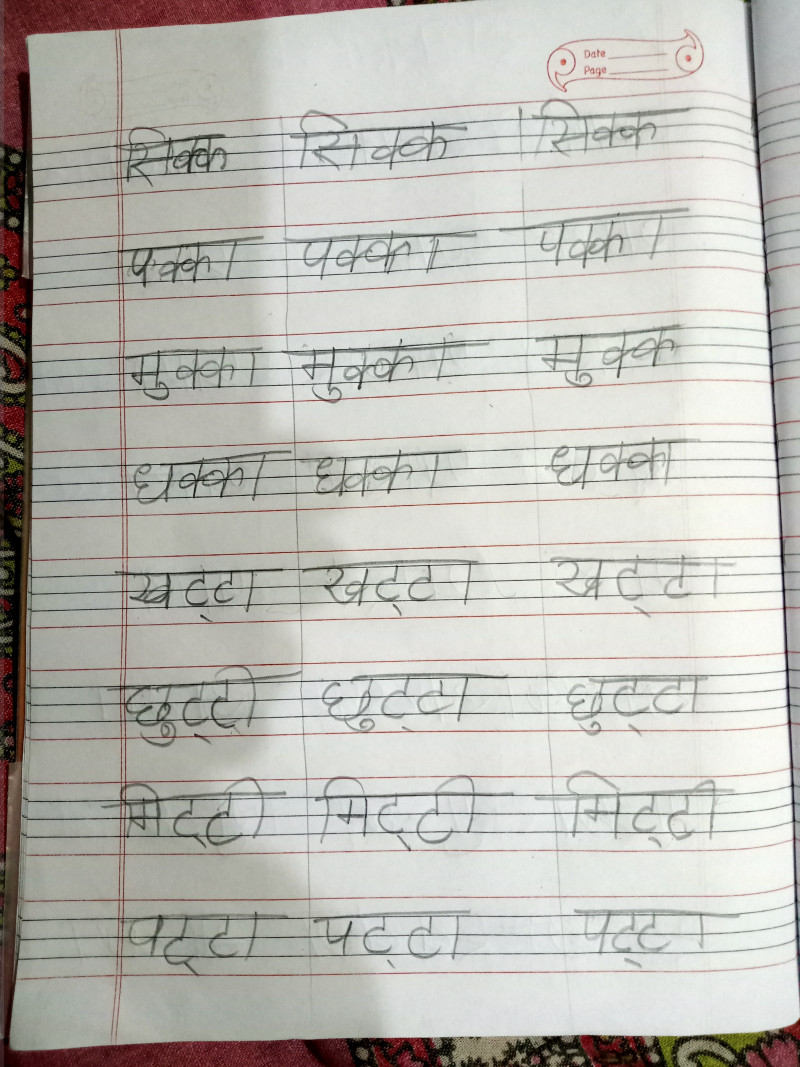 Date
Page
सिक्क सिक्क सिक्क
पक्का पक्का पक्का
मुक्का मुक्का मुक्क
धक्का धक्का धक्का
खट्टा खट्टा खट्टा
छुट्टी छुट्टा छुट्टा
मिट्टी मिट्टी मिट्टी
पट्टा पट्टा पट्टा